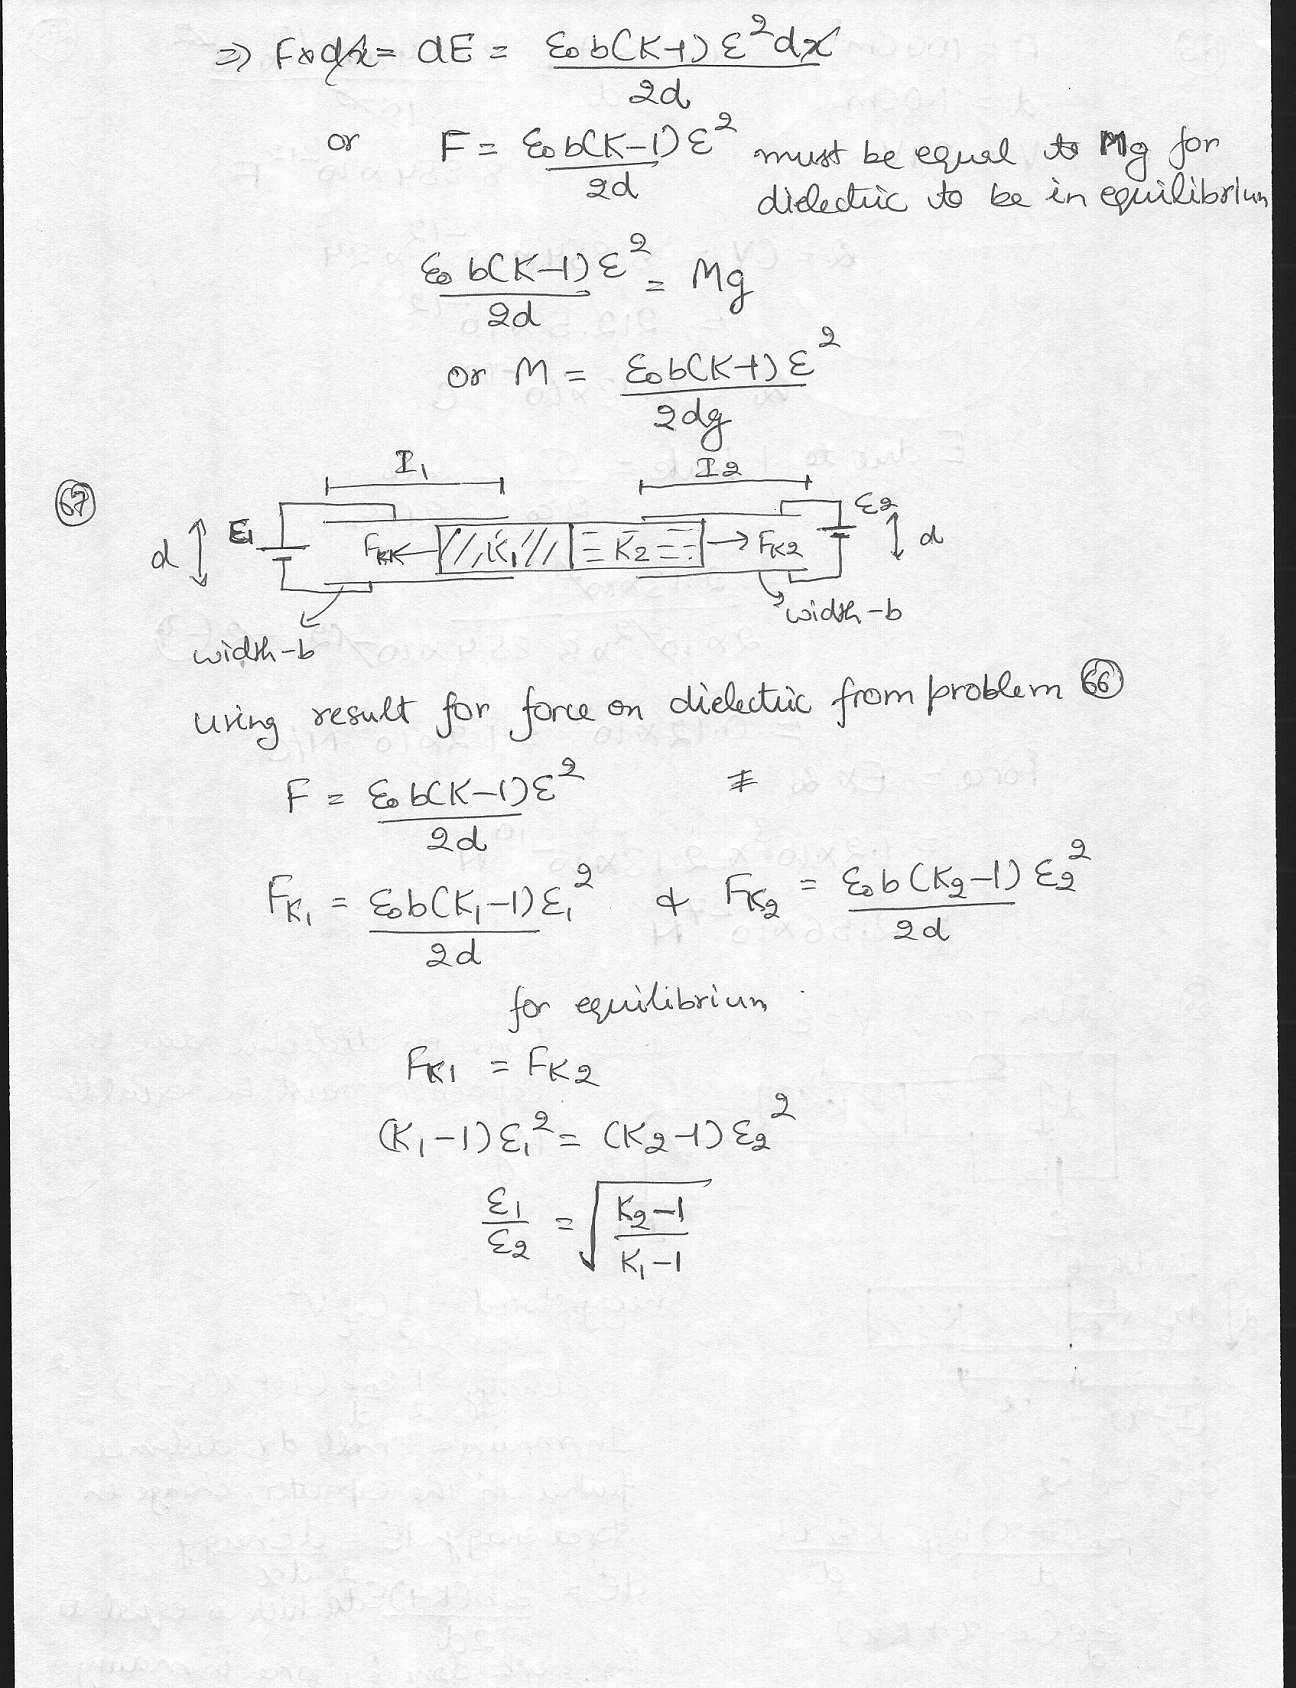 ⇒ F×dx = dE = ε₀b(K-1)ε²dx / 2d
or F = ε₀b(K-1)ε² / 2d must be equal to Mg for
dielectric to be in equilibrium
ε₀b(K-1)ε² / 2d = Mg
or M = ε₀b(K-1)ε² / 2dg
I₁ I2
67
d ε₁ FK1 K₁ K₂ FK2 ε2 d
width-b
width-b
using result for force on dielectric from problem 66
F = ε₀b(K-1)ε² / 2d
FK₁ = ε₀b(K₁-1)ε₁² / 2d & FK₂ = ε₀b(K₂-1)ε₂² / 2d
for equilibrium
FK1 = FK2
(K₁-1)ε₁² = (K₂-1)ε₂²
ε₁/ε₂ = √(K₂-1 / K₁-1)